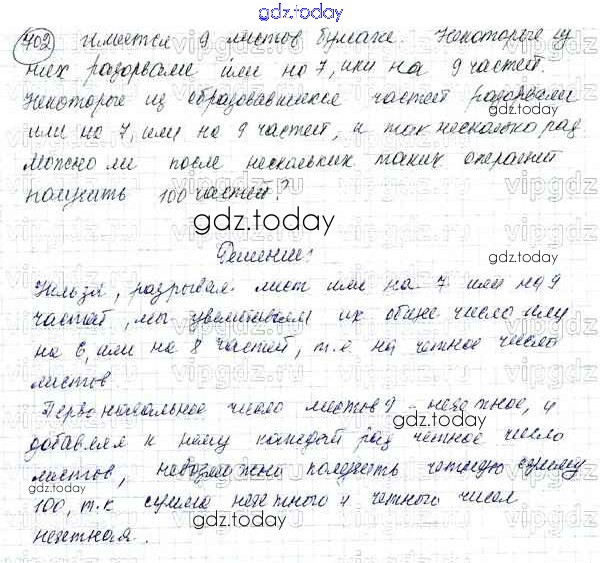 gdz.today
702 Имеется 9 листов бумаги. Некоторые из
них разорвали или на 7, или на 9 частей.
Некоторые из образовавшихся частей разорвали
gdz.today
или на 7, или на 9 частей, и так несколько раз
Можно ли после нескольких таких операций
получить 100 частей?
gdz.today
gdz.today
Решение:
Нельзя, разрывая лист или на 7 или на 9
частей, мы увеличиваем их общее число или
gdz.today
на 6, или на 8 частей, т.е. на четное число
листов.
Первоначальное число листов 9 - нечетное, и
gdz.today
добавляя к нему каждый раз четное число
листов, невозможно получить четную сумму
100, т.к сумма нечетного и четного чисел
gdz.today
нечетная.